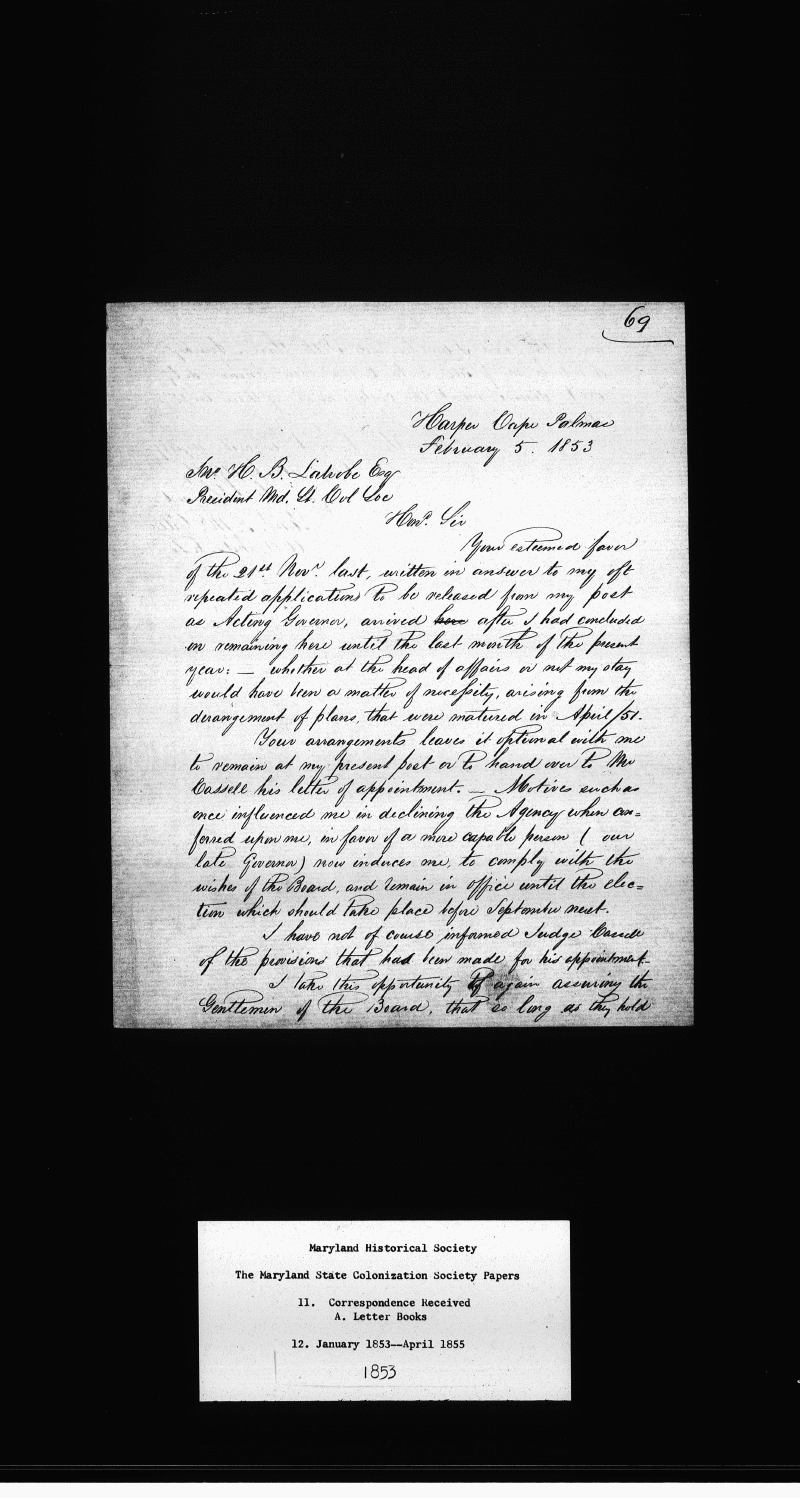 69
Harper Cape Palmas
February 5. 1853
Jno. H. B. Latrobe Esq
President Md. St. Col Soc
Hond. Sir
Your esteemed favor
of the 21st Novr. last, written in answer to my oft
repeated applications to be released from my post
as Acting Governor, arrived here after I had concluded
on remaining here until the last month of the present
year: — whether at the head of affairs or not my stay
would have been a matter of necessity, arising from the
derangement of plans, that were matured in April/51.
Your arrangements leaves it optional with me
to remain at my present post or to hand over to Mr
Cassell his letter of appointment. — Motives such as
once influenced me in declining the Agency when con=
ferred upon me, in favor of a more capable person ( our
late Governor) now induces me, to comply with the
wishes of the Board, and remain in office until the elec=
tion which should take place before September next.
I have not of course informed Judge Cassell
of the provisions that had been made for his appointment-
I take this opportunity of again assuring the
Gentlemen of the Board, that so long as they hold
Maryland Historical Society
The Maryland State Colonization Society Papers
11. Correspondence Received
A. Letter Books
12. January 1853--April 1855
1853